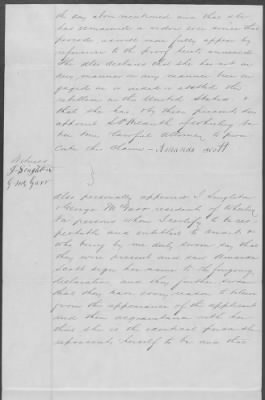 the day above mentioned and that she
has remained a widow ever since that
period as will more fully appear by
reference to the proof hereto annexed
She also declares that she has not in
any manner been en
gaged in or aided or abetted the
rebellion in the United States &
that she has by these presents
appoint her
true lawful attorney to prose
cute this claim - Amanda Scott
Witness
J. Singleton
G. McGarr
Also personally appeared J. Singleton
& George McGarr residents of
persons whom I certify to be res
pectable and entitled to credit &
who being by me duly sworn say that
they were present and saw Amanda
Scott sign her name to the foregoing
declaration and they further swear
that they have every reason to believe
from the appearance of the applicant
and their acquaintance with her
that she is the identical person she
represents herself to be and that